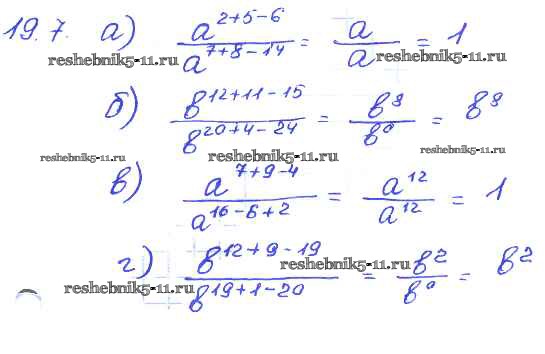 19.7. а) a^(2+5-6) / a^(7+8-14) = a / a = 1
reshebnik5-11.ru reshebnik5-11.ru
б) b^(12+11-15) / b^(20+4-24) = b^8 / b^0 = b^8
reshebnik5-11.ru reshebnik5-11.ru reshebnik5-11.ru
в) a^(7+9-4) / a^(16-6+2) = a^12 / a^12 = 1
г) b^(12+9-19) / b^(19+1-20) = b^2 / b^0 = b^2
reshebnik5-11.ru reshebnik5-11.ru